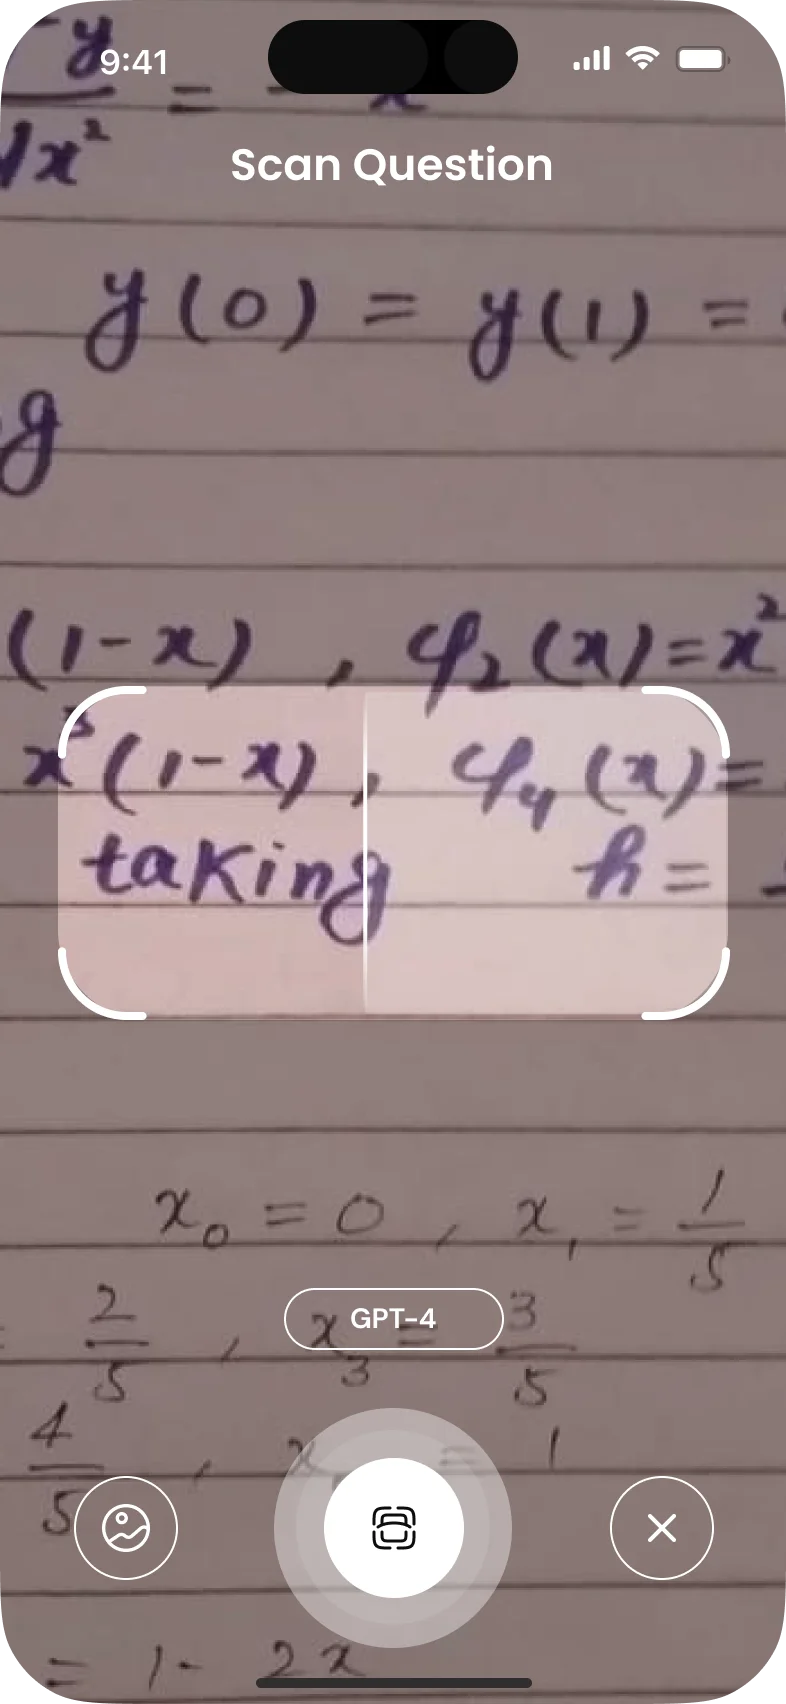 9:41
Scan Question
y
= - x
dx²
y(0) = y(1) =
g
(1-x) , φ₂(x)=x²
x³(1-x) , φ₄(x)=
taking h=
x₀ = 0 , x₁ = 1/5
2/5 , x₃ = 3/5
GPT-4
4/5 , x = 1
= 1- 2x